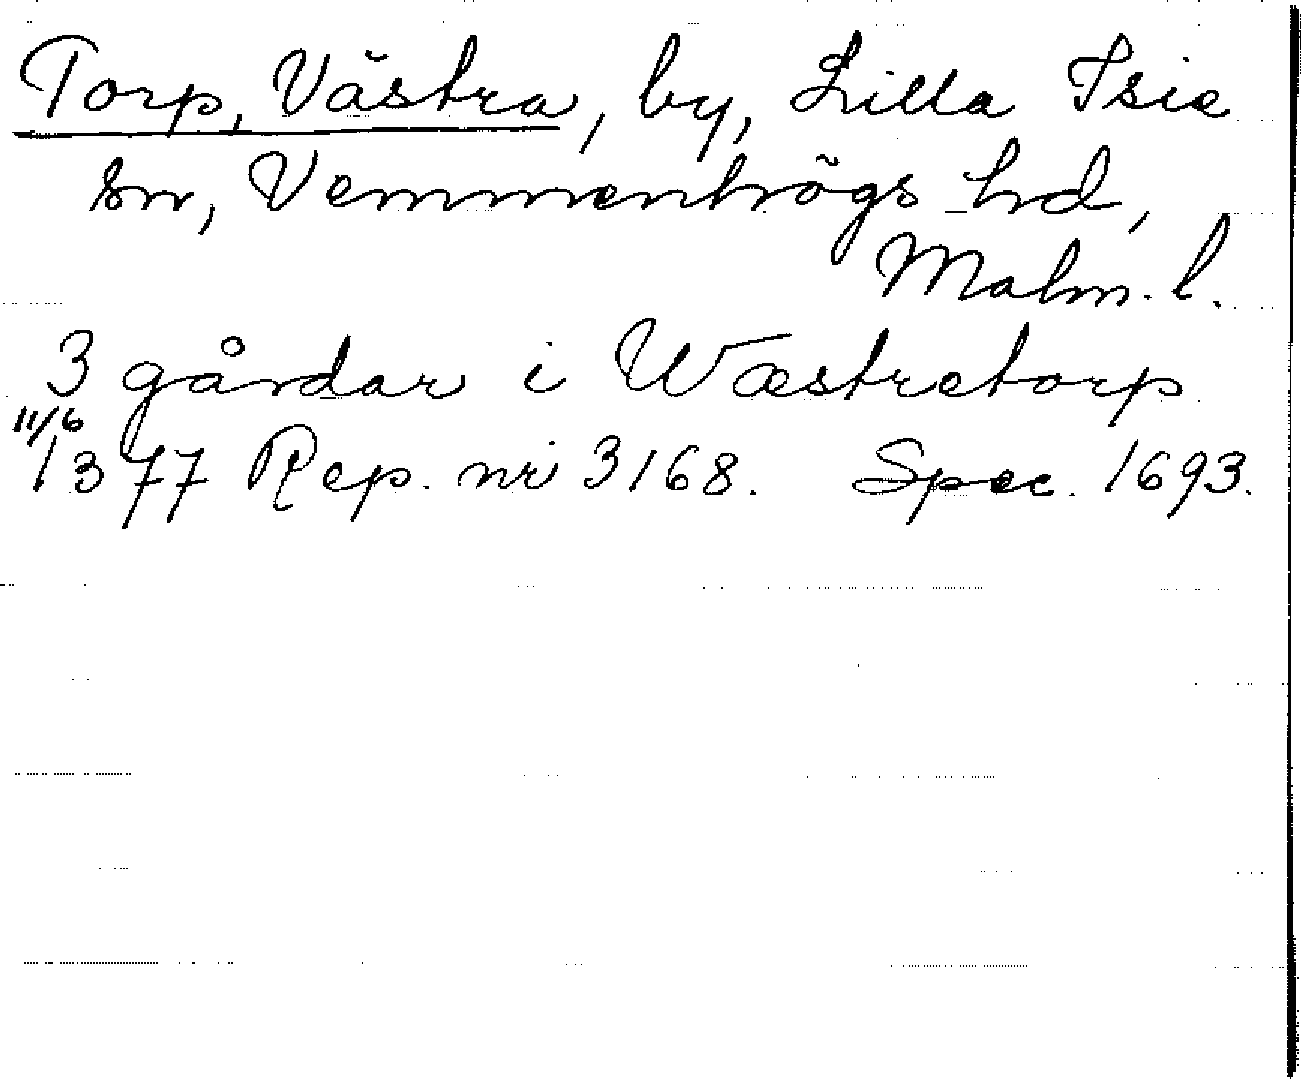 Torp, Västra, by, Lilla Isie
sn, Vemmenhögs hd,
Malm. l.
3 gårdar i Wæstretorp
11/6
1377 Rep. nr 3168. Spec. 1693.